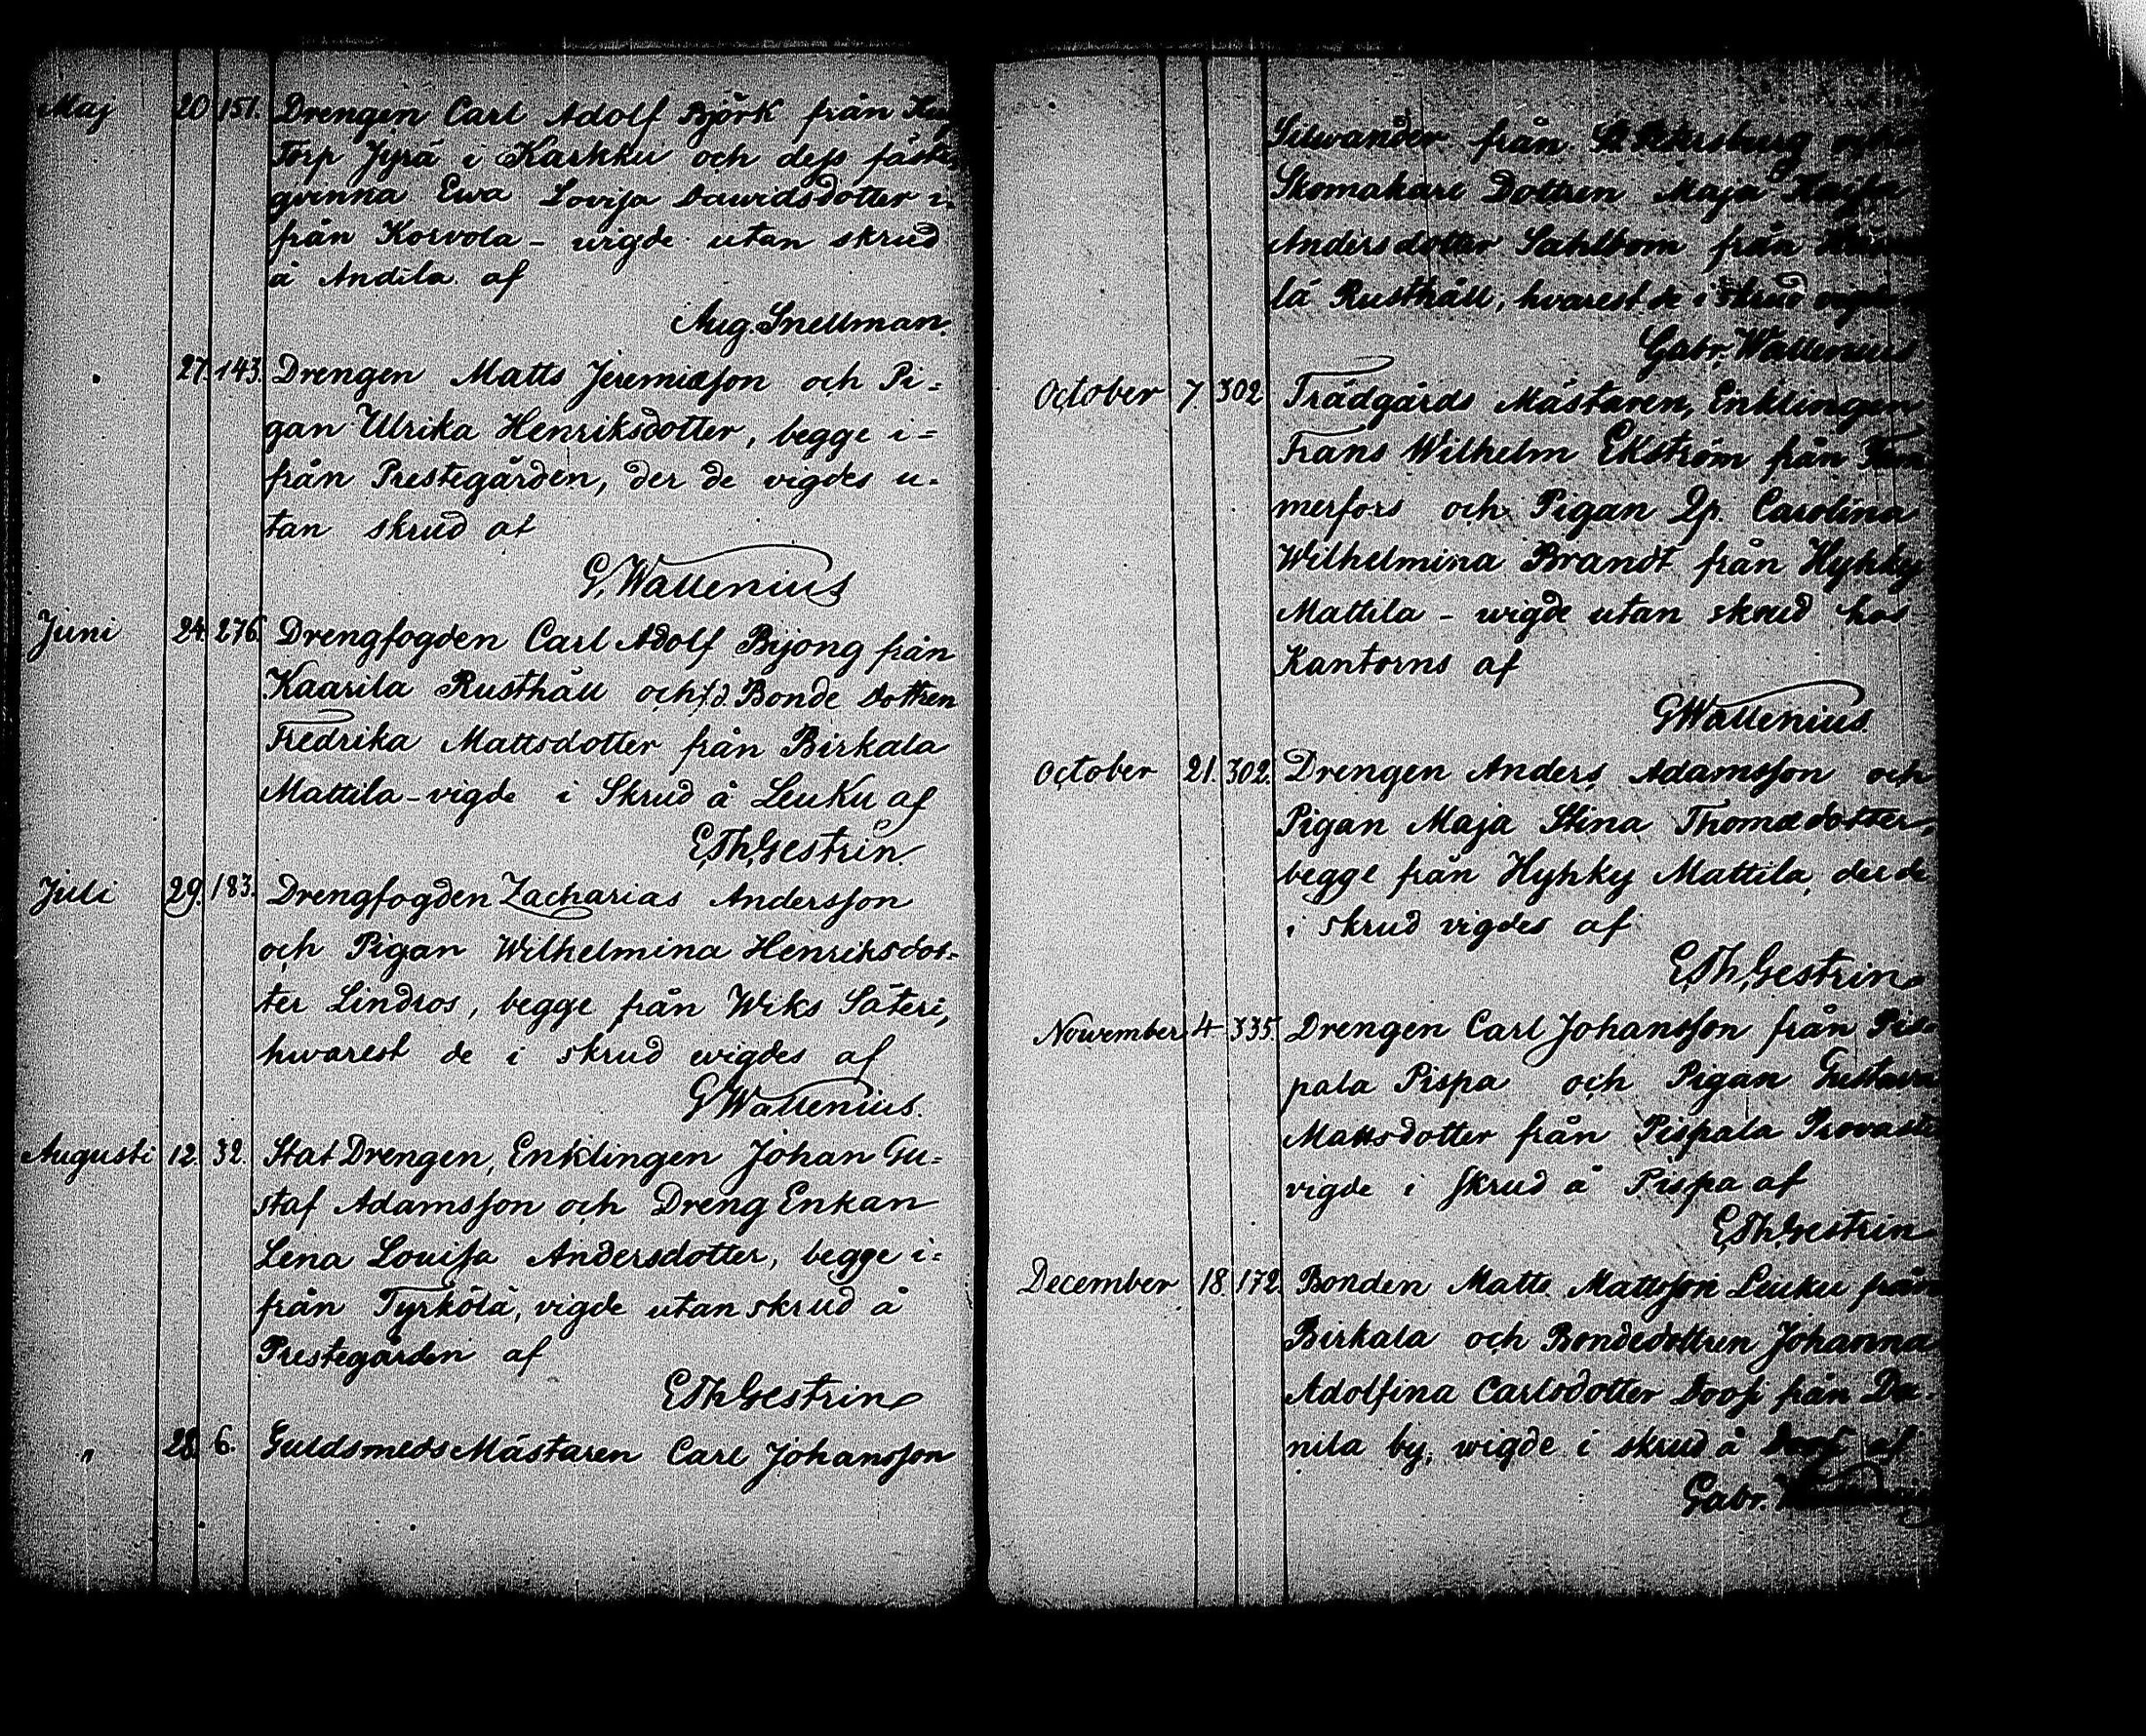 Maj 20 151. Drengen Carl Adolf Björk från
Torp Jyrä i Karkku och dess fäste
qvinna Ewa Lovisa Davidsdotter i-
från Korvola - vigde utan skrud
å Andila af
Aug. Snellman.
. 27. 143 Drengen Matts Jeremiæson och Pi-
gan Ulrika Henriksdotter, begge i=
från Prestegården, der de vigdes u-
tan skrud af
G. Wallenius
Juni 24. 276. Drengfogden Carl Adolf Bijong från
Kaarila Rusthåll och f.d. Bonde Dottren
Fredrika Mattsdotter från Birkala
Mattila - vigde i Skrud å Leuku af
E. Th. Gestrin.
Juli 29. 183. Drengfogden Zacharias Andersson
och Pigan Wilhelmina Henriksdot-
ter Lindros, begge från Wiks Säteri,
hwarest de i skrud wigdes af
G Wallenius.
Augusti 12. 32. Stat Drengen, Enklingen Johan Gu-
staf Adamsson och Dreng Enkan
Lena Lovisa Andersdotter, begge i-
från Tyrkölä, vigde utan skrud å
Prestegården af
E Th Gestrin
" 28. 6. Guldsmeds Mästaren Carl Johansson
Silwander från St. Petersburg och
Skomakare Dottren Maja Kajsa
Andersdotter Sahlbom från
lä Rusthåll, hvarest de i skrud vigdes
Gabr. Wallenius
October 7. 302 Trädgårds Mästaren, Enklingen
Frans Wilhelm Ekström från Tam
merfors och Pigan Qp. Carolina
Wilhelmina Brandt från Hyhky
Mattila - wigde utan skrud hos
Kantorns af
G Wallenius.
October 21. 302. Drengen Anders Adamsson och
Pigan Maja Stina Thomædotter,
begge från Hyhky Mattila, der de
i skrud vigdes af
E. Th. Gestrin
November 4 335. Drengen Carl Johansson från Pis-
pala Pispa och Pigan Gustava
Mattsdotter från Pispala Provasti
vigde i skrud å Pispa af
E. Th. Gestrin
December 18. 172. Bonden Matts Mattsson Leuku från
Birkala och Bondedottren Johanna
Adolfina Carlsdotter Sovsi från Da-
nila by, wigde i skrud å af
Gabr. Wallenius